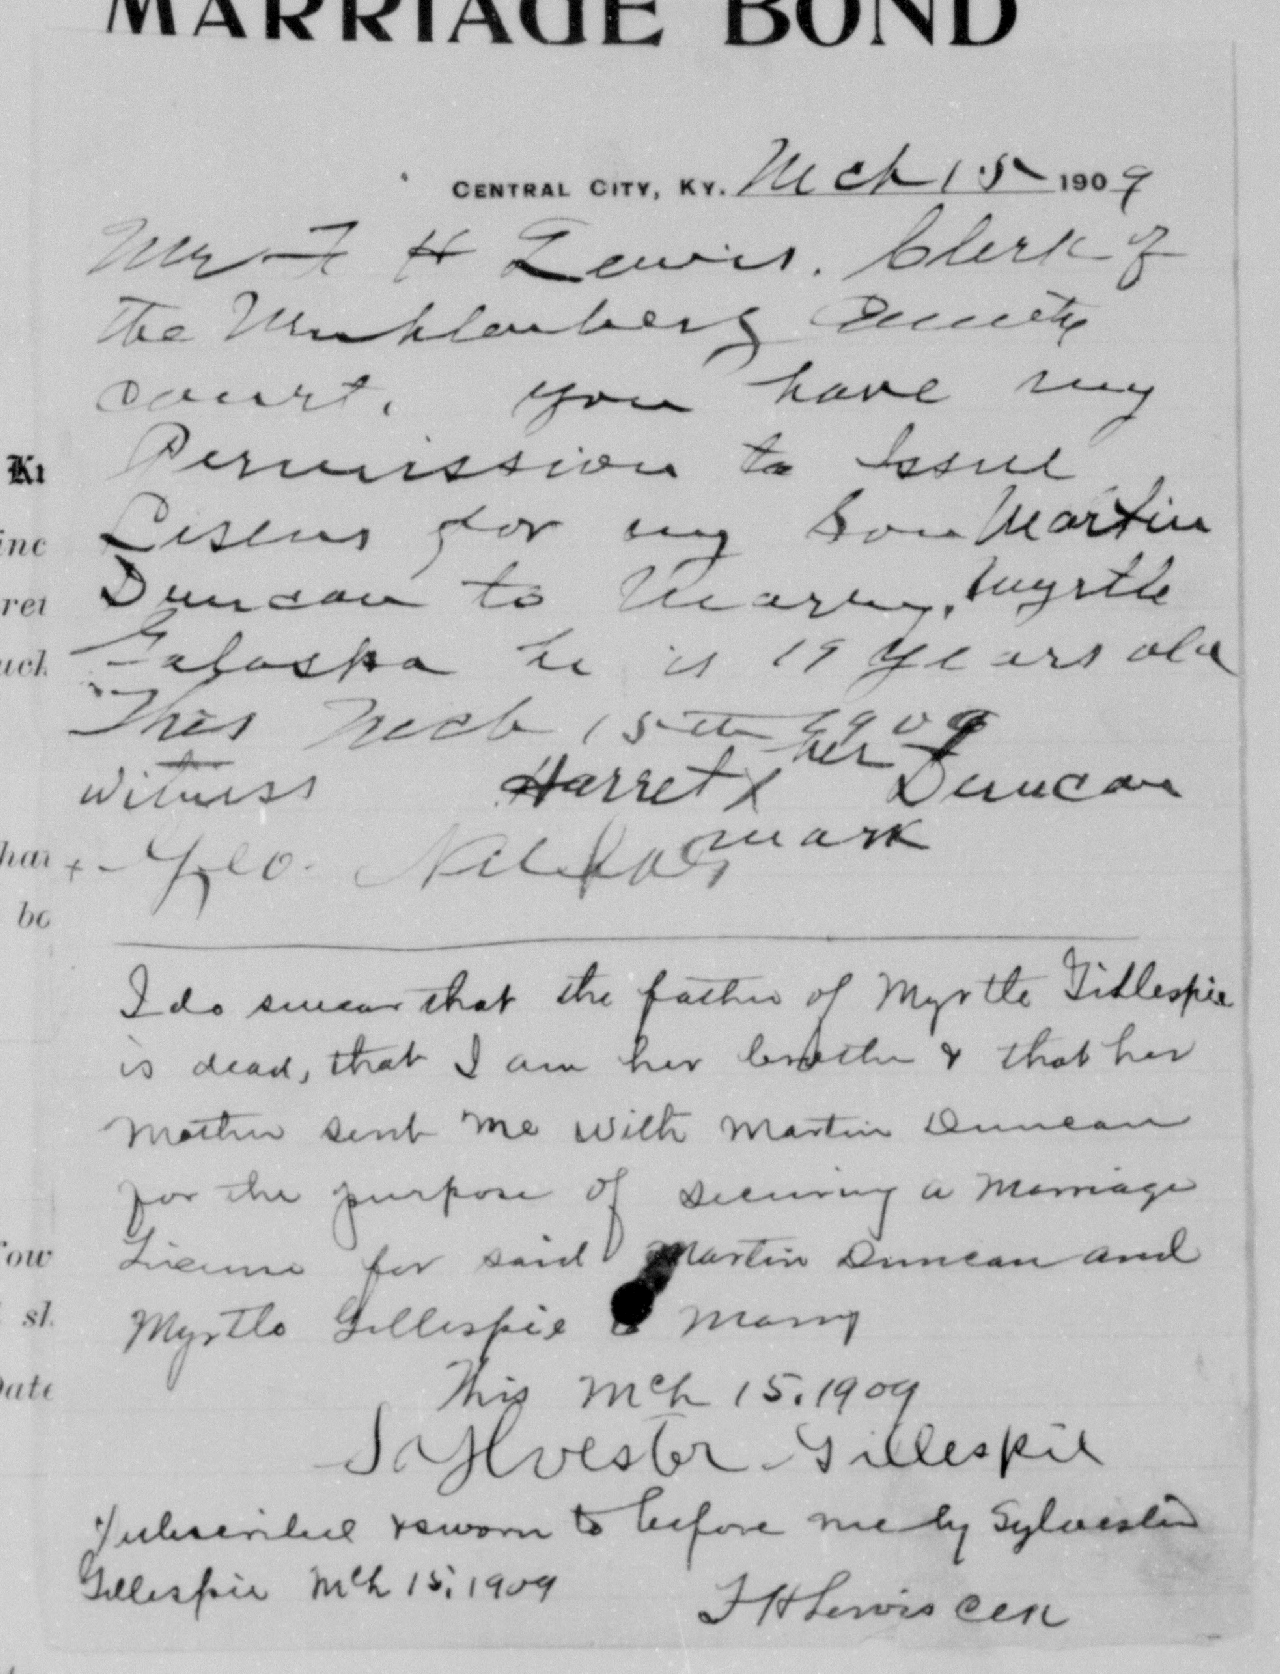 MARRIAGE BOND
CENTRAL CITY, KY. Mch 15 1909
Mr F H Lewis. Clerk of
the Muhlenberg County
court. you have my
Permission to Issue
Lisens for my son Martin
Duncan to Marry. Myrtle
Galaspa he is 19 years old
This Mch 15th 1909
her
witness Harret X Duncan
mark
+ Geo.
I do swear that the father of Myrtle Gillespie
is dead, that I am her brother & that her
mother sent me with Martin Duncan
for the purpose of securing a marriage
License for said Martin Duncan and
Myrtle Gillespie to marry
This Mch 15, 1909
Sylvester Gillespie
Subscribed & sworn to before me by Sylvester
Gillespie Mch 15, 1909
F H Lewis Clk